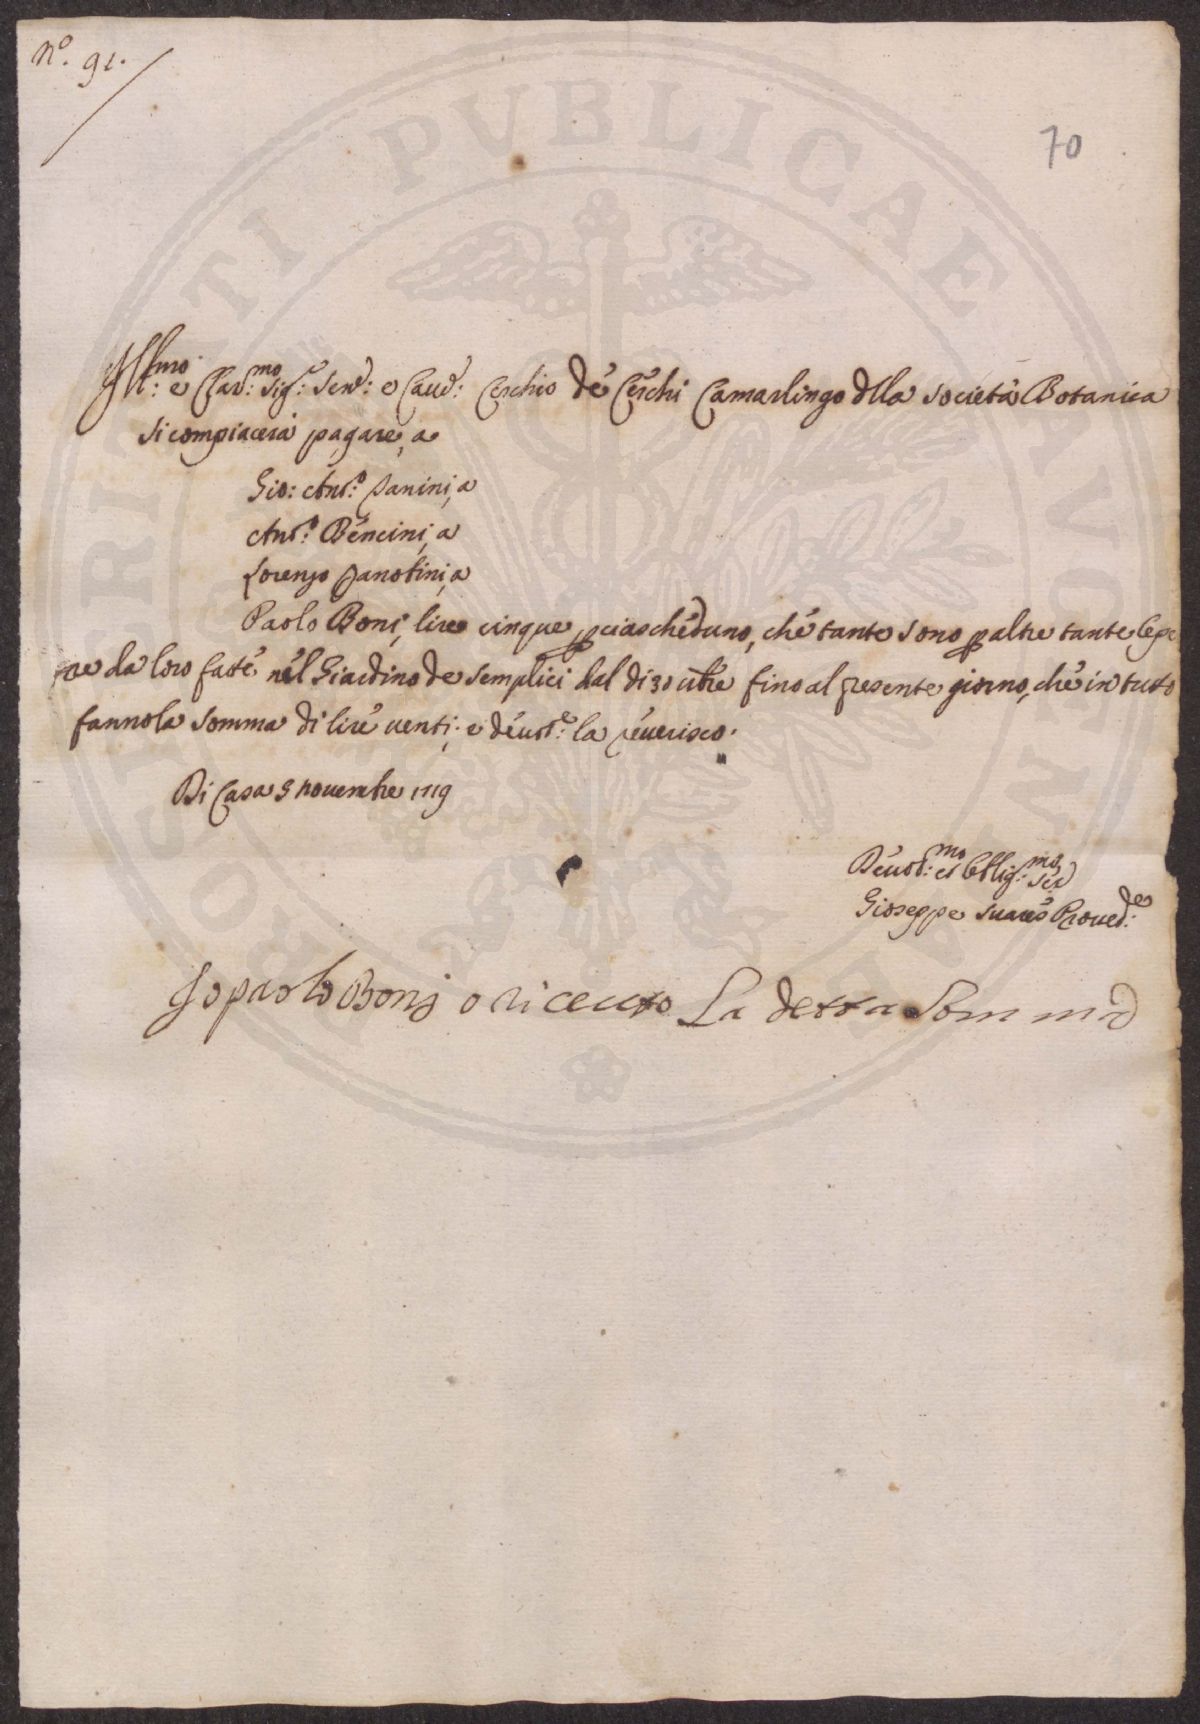 N.º 91.
70
Ill:mo e Clar:mo Sig:re Sen:re e Cau:re Cerchio de Cerchi Camarlingo dlla Società Botanica
si compiacerà pagare, a
Gio: Ant.º Panini, a
Ant.º Bencini, a
Lorenzo Panolini, a
Paolo Boni, lire cinque p ciascheduno, che tante sono p altre tante Ope
re da loro fatte nel Giardino de Semplici dal di 30 8bre fino al presente giorno, che in tutto
fanno la somma di lire venti; e deuot:e la reuerisco.
Di Casa 5 nouembre 1719
Deuot:mo et Oblig:mo Ser
Gioseppe Suares Proued:re
Io paolo Boni o riceuto La detta Somma
BONARUM
PUBLICAE